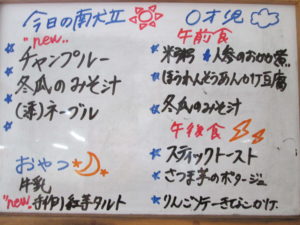 今日の南犬Ⅱ
"new"..
チャンプルー
冬瓜のみそ汁
(遅)ネーブル
おやつ
牛乳
"new".手作り紅芋タルト
0才児
午前食
米粥 人参のおかか煮..
ほうれんそうあんかけ豆腐
冬瓜のみそ汁
午後食
スティックトースト
さつま芋のポタージュ
りんごケーキきなこかけ.